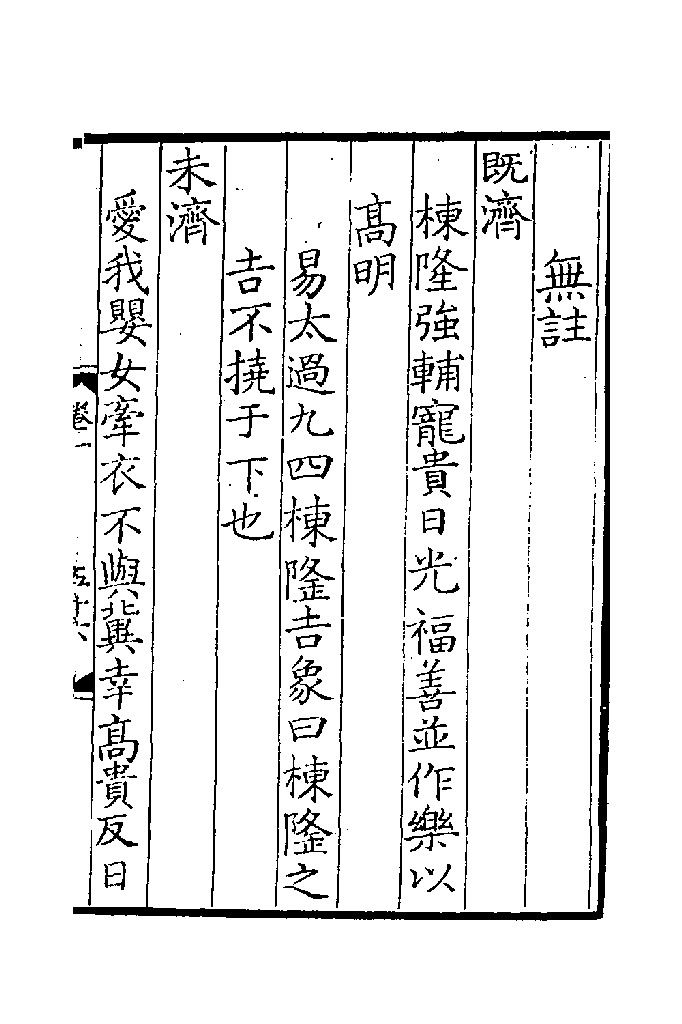 無註
既濟
棟隆強輔寵貴日光福善並作樂以
髙明
易太過九四棟隆吉象曰棟隆之
吉不撓于下也
未濟
愛我嬰女牽衣不與冀幸髙貴反曰
卷一
五十六